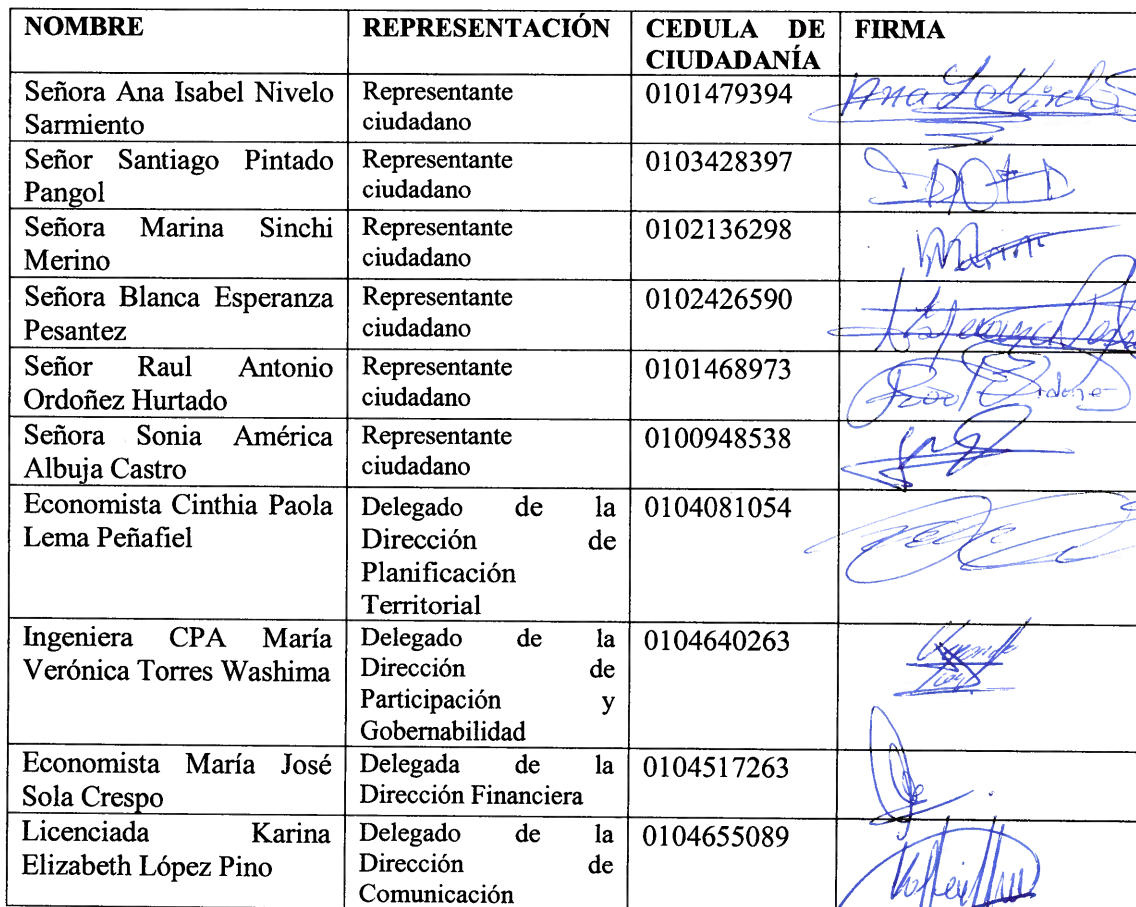 NOMBRE REPRESENTACIÓN CEDULA DE CIUDADANÍA FIRMA
Señora Ana Isabel Nivelo Sarmiento Representante ciudadano 0101479394
Señor Santiago Pintado Pangol Representante ciudadano 0103428397
Señora Marina Sinchi Merino Representante ciudadano 0102136298
Señora Blanca Esperanza Pesantez Representante ciudadano 0102426590
Señor Raul Antonio Ordoñez Hurtado Representante ciudadano 0101468973
Señora Sonia América Albuja Castro Representante ciudadano 0100948538
Economista Cinthia Paola Lema Peñafiel Delegado de la Dirección de Planificación Territorial 0104081054
Ingeniera CPA María Verónica Torres Washima Delegado de la Dirección de Participación y Gobernabilidad 0104640263
Economista María José Sola Crespo Delegada de la Dirección Financiera 0104517263
Licenciada Karina Elizabeth López Pino Delegado de la Dirección de Comunicación 0104655089